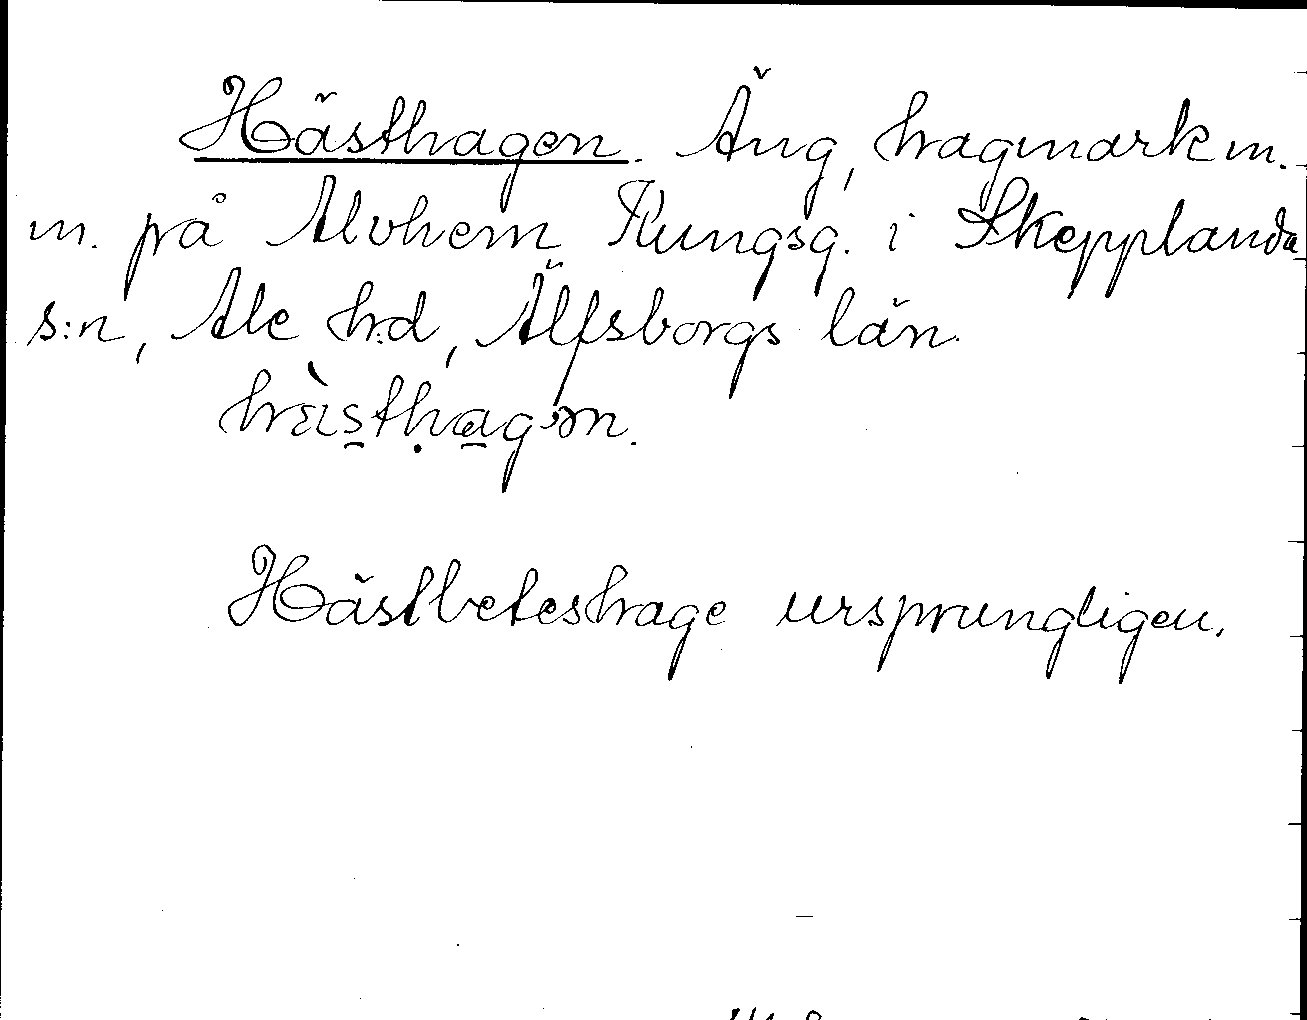 Hästhagen. Äng, hagmark m.
m. på Alvhem Kungsg. i Skepplanda
s:n, Ale h:d, Älfsborgs län.
Hästbeteshage ursprungligen.